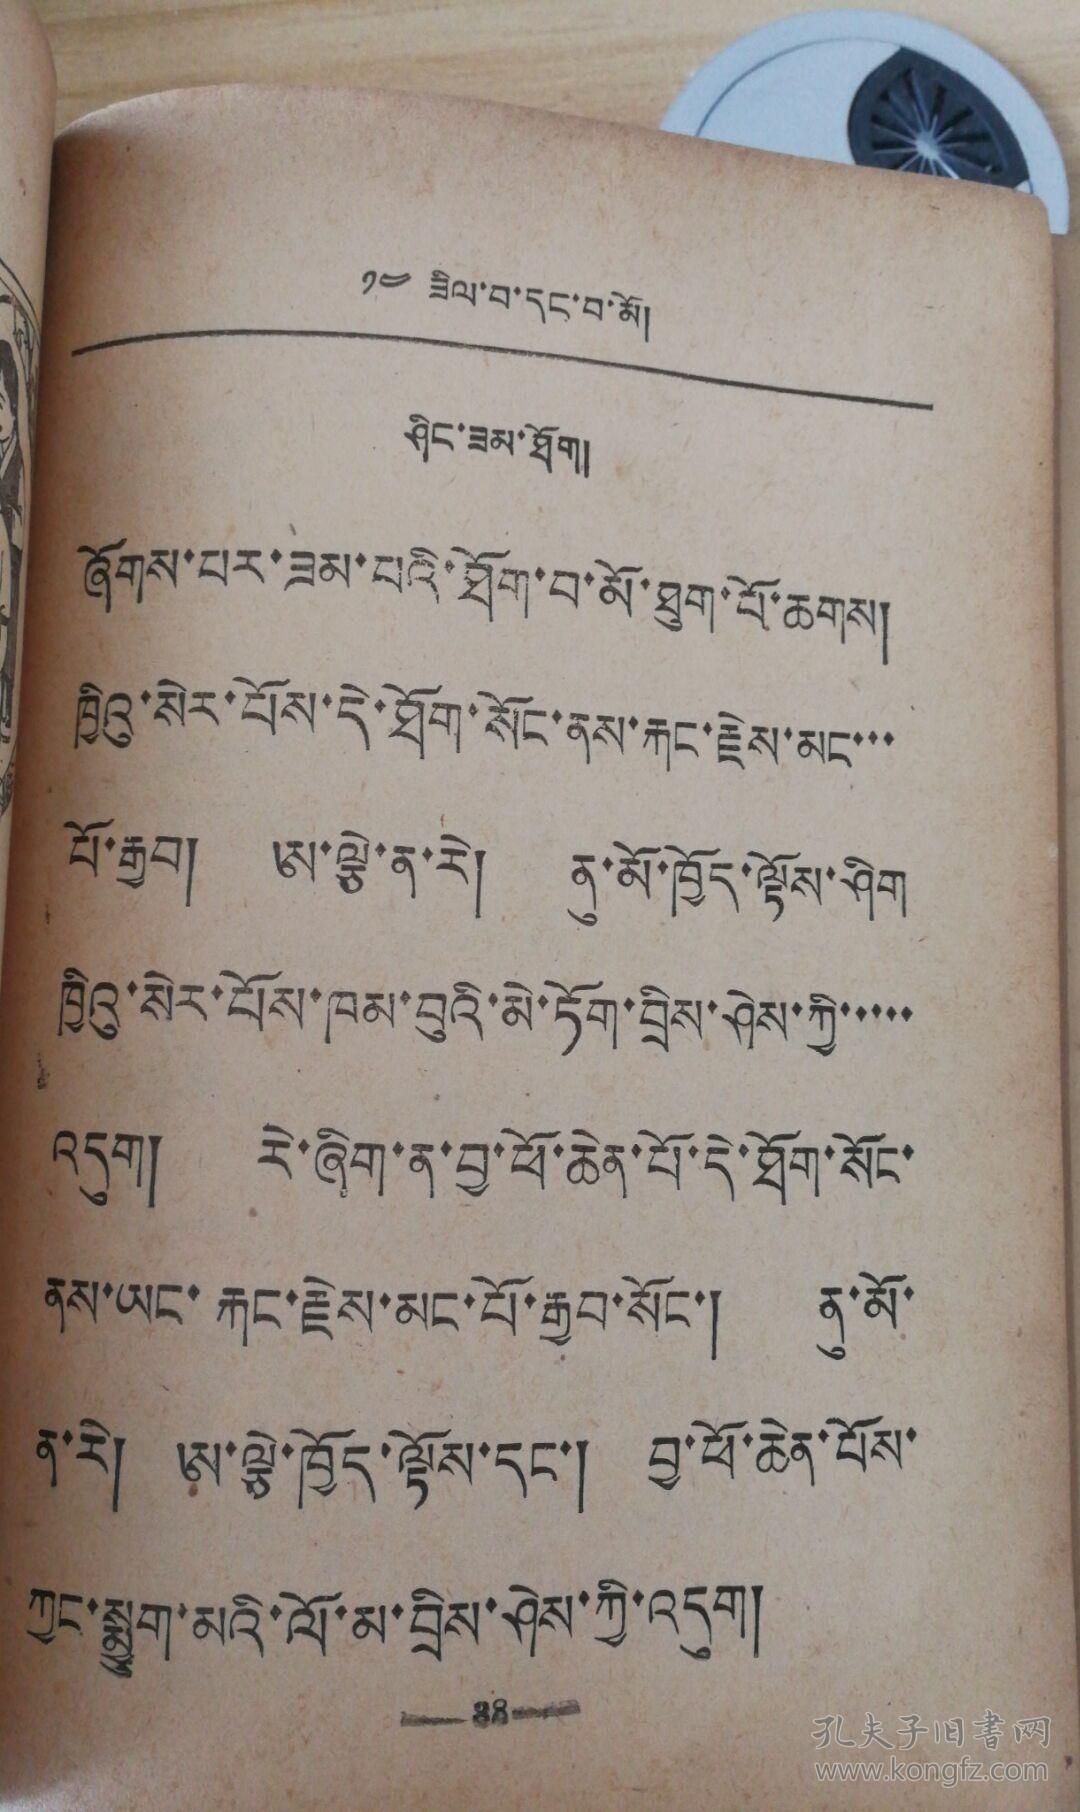 ༡༠ ཟིལ་བ་དང་བ་མོ།
ཤིང་ཟམ་ཐོག
ཞོགས་པར་ཟམ་པའི་ཐོག་བ་མོ་ཐུག་པོ་ཆགས།
ཁྱིའུ་སེར་པོས་དེ་ཐོག་སོང་ནས་རྐང་རྗེས་མང་...
པོ་རྒྱབ། ཨ་ལྕེ་ན་རེ། ནུ་མོ་ཁྱོད་ལྟོས་ཤིག
ཁྱིའུ་སེར་པོས་ཁམ་བུའི་མེ་ཏོག་བྲིས་ཤེས་ཀྱི་.....
འདུག རེ་ཞིག་ན་བྱ་ཕོ་ཆེན་པོ་དེ་ཐོག་སོང་
ནས་ཨང་ རྐང་རྗེས་མང་པོ་རྒྱབ་སོང་། ནུ་མོ་
ན་རེ། ཨ་ལྕེ་ཁྱོད་ལྟོས་དང་། བྱ་ཕོ་ཆེན་པོས་
ཀྱང་སྨྱུག་མའི་ལོ་མ་བྲིས་ཤེས་ཀྱི་འདུག
孔夫子旧书网
www.kongfz.com